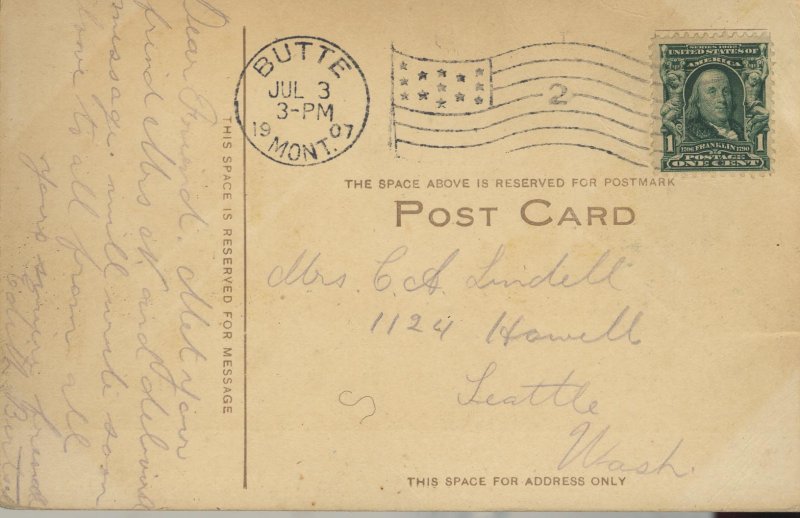 Dear Friend. Met your
frind Mrs and deliverd
message. will write soon
love to all from all
yours friend
Edith
THIS SPACE IS RESERVED FOR MESSAGE
BUTTE
JUL 3
3-PM
19 07
MONT.
2
SERIES 1902
UNITED STATES OF
AMERICA
1706 FRANKLIN 1790
1 POSTAGE 1
ONE CENT
THE SPACE ABOVE IS RESERVED FOR POSTMARK
POST CARD
Mrs. C. A. Lindell
1124 Howell
Seattle
Wash.
THIS SPACE FOR ADDRESS ONLY